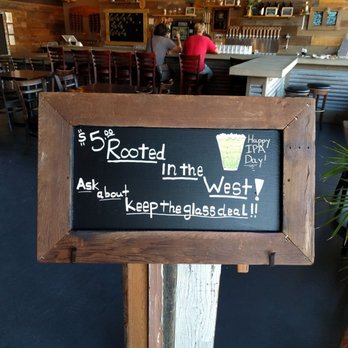 $5.00 Rooted
in the
West!
Happy
IPA
Day!
Ask about
Keep the glass deal!!